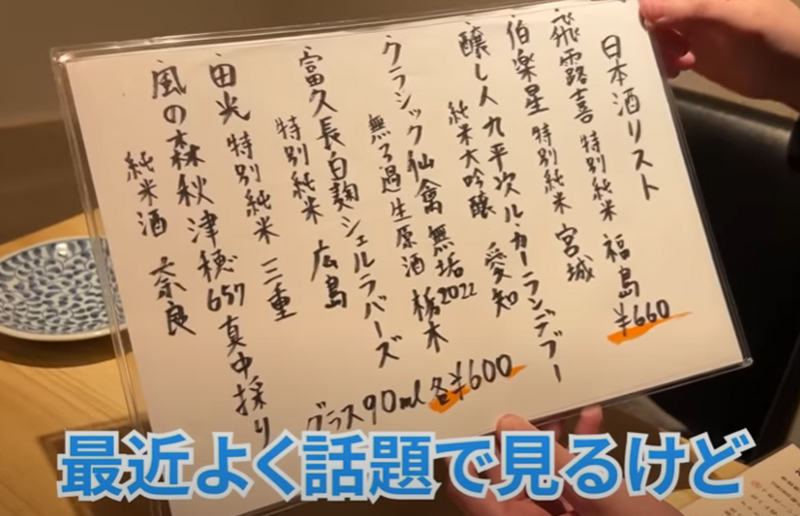 日本酒リスト
飛露喜 特別純米 福島 ¥660
伯楽星 特別純米 宮城
醸し人九平次 ル・カーランデブー
純米大吟醸 愛知
クラシック仙禽無垢2022
無ろ過生原酒 栃木
富久長白麹シェルラバーズ
特別純米 広島
田光 特別純米 三重
風の森秋津穂657真中採り
純米酒 奈良
グラス90ml各¥600
最近よく話題で見るけど